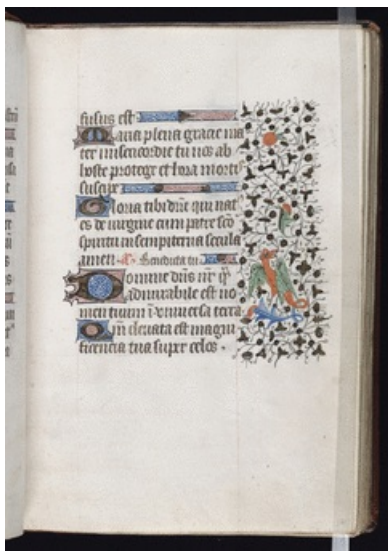 fusus est
Maria plena gracie ma
ter misericordie tu nos ab
hoste protege et hora mortis
suscipe
Gloria tibi dñe qui nat
es de uirgine cum patre sco
spiritu in sempiterna secula
amen a. Benedicta tu
Domine dñs nr̃ q̃
admirabile est no
men tuum ĩ vniuersa terra
Qm̃ eleuata est magni
ficencia tua super celos .